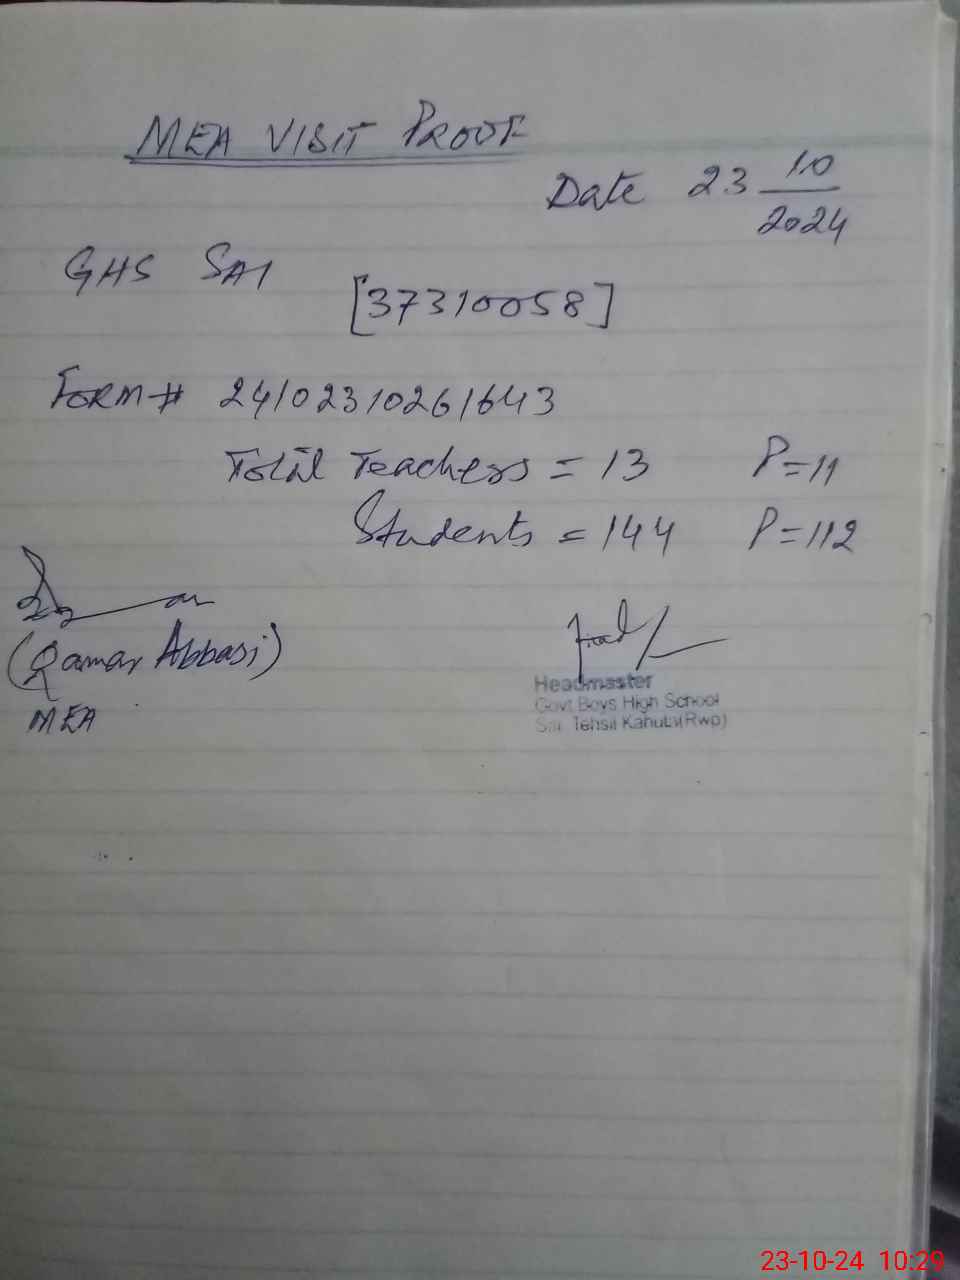 MEA VISIT PROOF
Date 23 10/2024
GHS SAI
[37310058]
Form # 24102310261643
Total Teachers = 13 P=11
Students = 144 P=112
(Qamar Abbasi)
MEA
Headmaster
Govt Boys High School
Sai Tehsil Kahuta(Rwp)
23-10-24 10:29